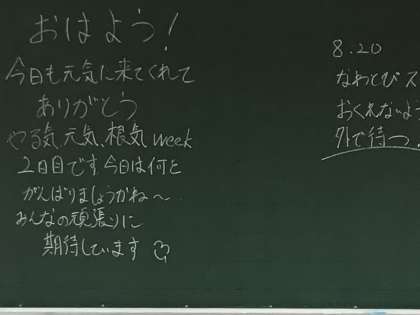 おはよう!
今日も元気に来てくれて
ありがとう
やる気、元気、根気 week
2日目です 今日は何を
がんばりましょうかね〜
みんなの頑張りに
期待しています
8.20
なわとびス
おくれないよ
外で待つ.